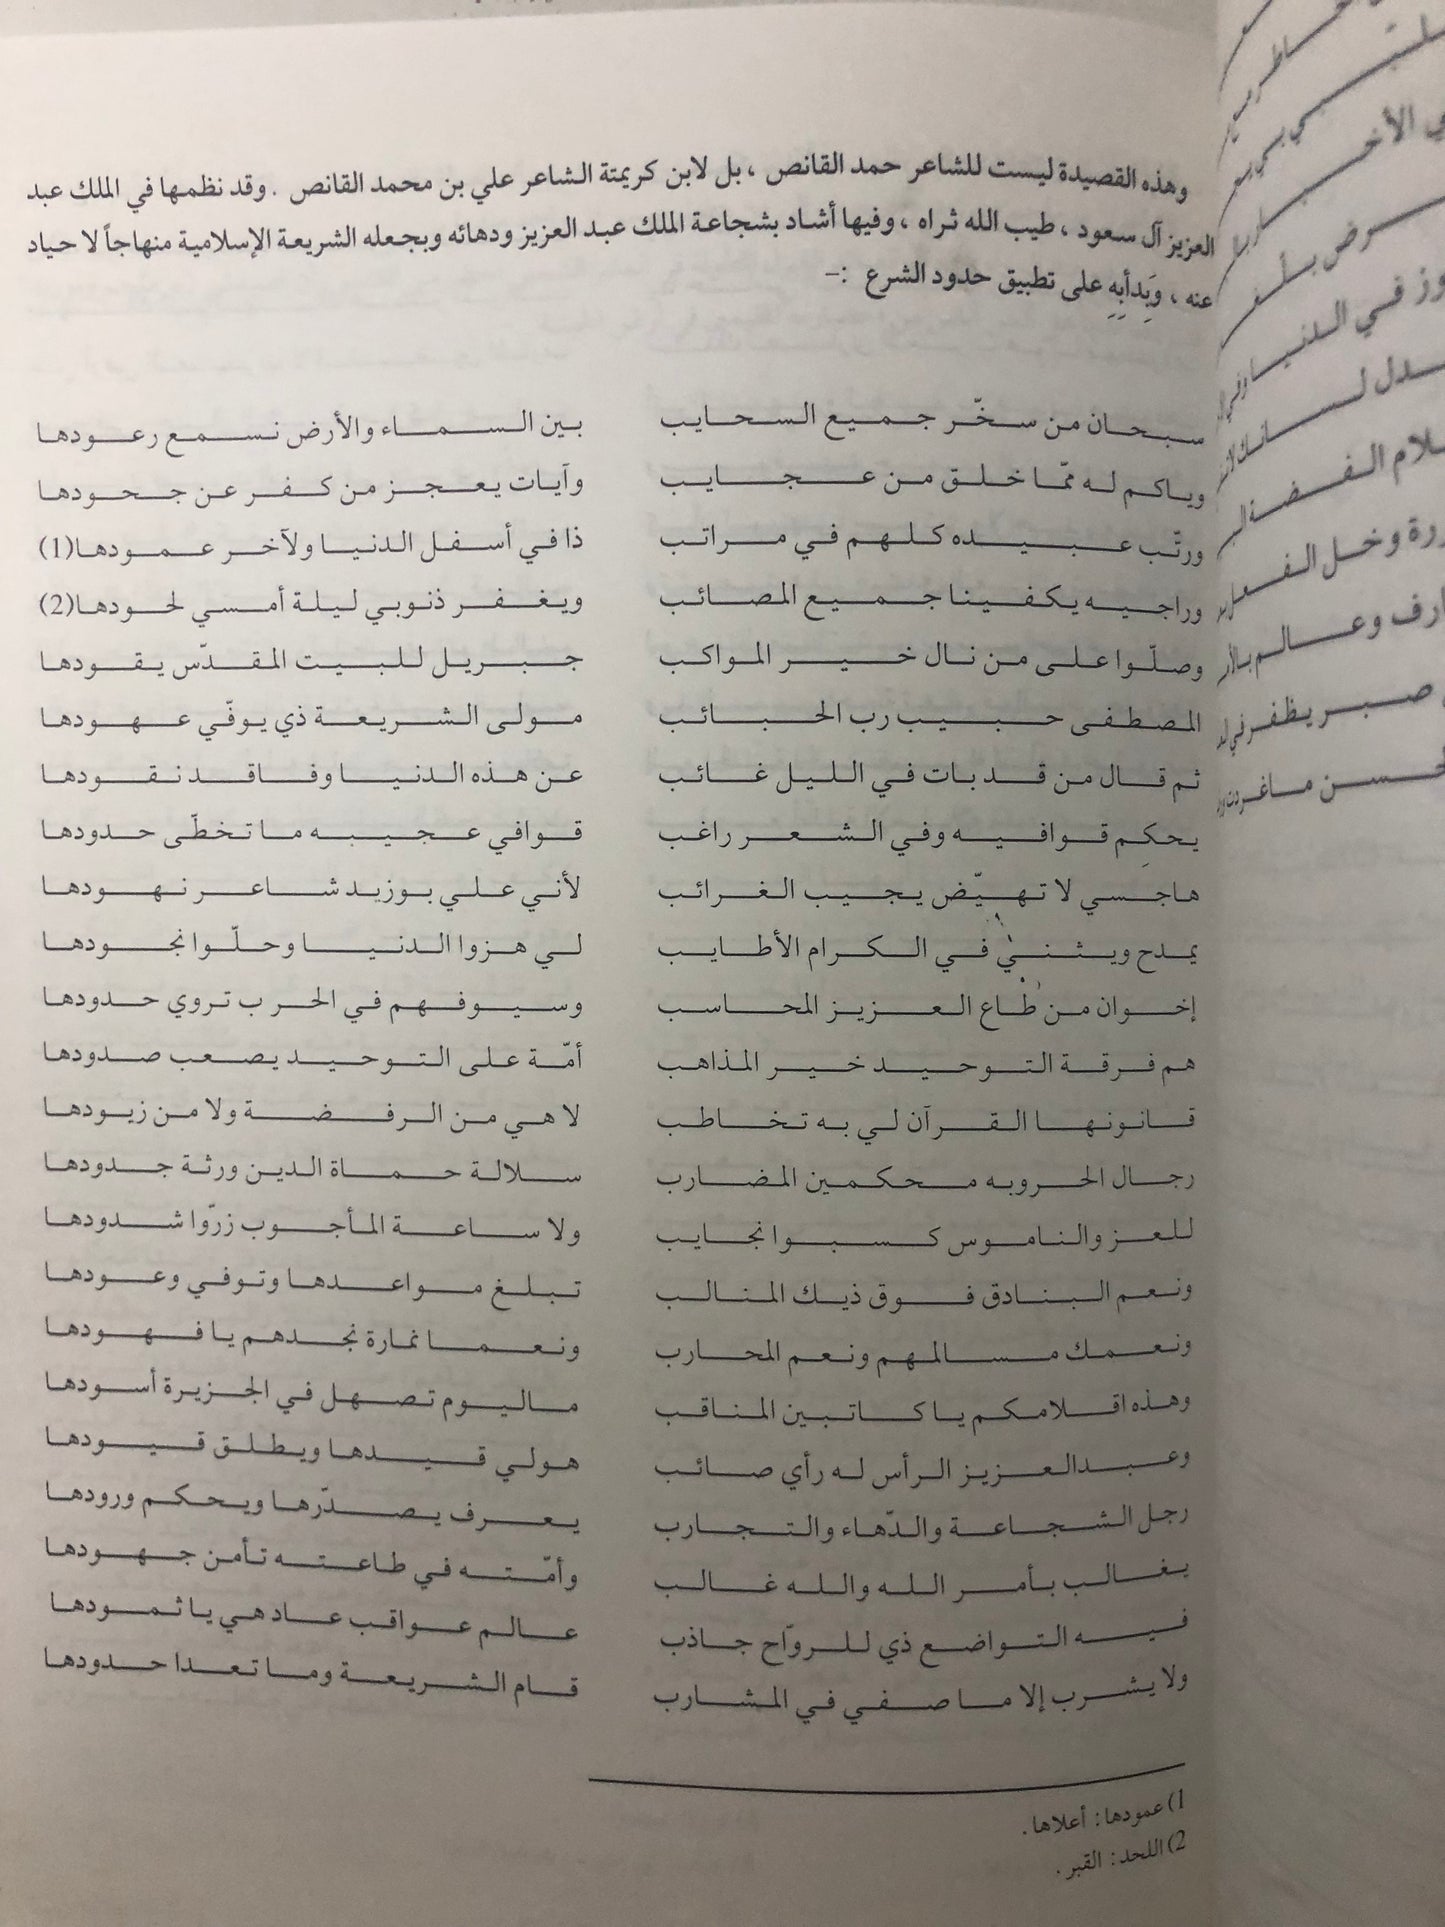 وهذه القصيدة ليست للشاعر حمد القانص ، بل لابن كريمتة الشاعر علي بن محمد القانص . وقد نظمها في الملك عبد
العزيز آل سعود ، طيب الله ثراه ، وفيها أشاد بشجاعة الملك عبد العزيز ودهائه وبجعله الشريعة الإسلامية منهاجاً لا حياد
عنه ، وبِدأبِهِ على تطبيق حدود الشرع :–
سبحان من سخّر جميع السحايب بين السماء والأرض نسمع رعودها
وياكم له ممّا خلق من عجايب وآيات يعجز من كفر عن جحودها
ورتّب عبيده كلهم في مراتب ذا في أسفل الدنيا ولآخر عمودها(1)
وراجيه يكفينا جميع المصائب ويغفر ذنوبي ليلة أمسي لحودها(2)
وصلّوا على من نال خير المواكب جبريل للبيت المقدّس يقودها
المصطفى حبيب رب الحبائب مولى الشريعة ذي يوفّي عهودها
ثم قال من قد بات في الليل غائب عن هذه الدنيا وفاقد نقودها
يحكِم قوافيه وفي الشعر راغب قوافي عجيبه ما تخطّى حدودها
هاجسي لا تهيّض يجيب الغرائب لأني علي بوزيد شاعر نهودها
يمدح ويثني في الكرام الأطايب لي هزوا الدنيا وحلّوا نجودها
إخوان من طاع العزيز المحاسب وسيوفهم في الحرب تروي حدودها
هم فرقة التوحيد خير المذاهب أمّة على التوحيد يصعب صدودها
قانونها القرآن لي به تخاطب لا هي من الرفضة ولا من زيودها
رجال الحروبه محكمين المضارب سلالة حماة الدين ورثة جدودها
للعز والناموس كسبوا نجايب ولا ساعة المأجوب زرّوا شدودها
ونعم البنادق فوق ذيك المنالب تبلغ مواعدها وتوفي وعودها
ونعمك مسالمهم ونعم المحارب ونعما نمارة نجدهم يا فهودها
وهذه اقلامكم يا كاتبين المناقب ماليوم تصهل في الجزيرة أسودها
وعبدالعزيز الرأس له رأي صائب هولي قيدها ويطلق قيودها
رجل الشجاعة والدّهاء والتجارب يعرف يصدّرها ويحكم ورودها
يغالب بأمر الله والله غالب وأمّته في طاعته تأمن جهودها
فيه التواضع ذي للروّاح جاذب عالم عواقب عاد هي يا ثمودها
ولا يشرب إلا ما صفي في المشارب قام الشريعة وما تعدا حدودها
1) عمودها : أعلاها .
2) اللحد : القبر .